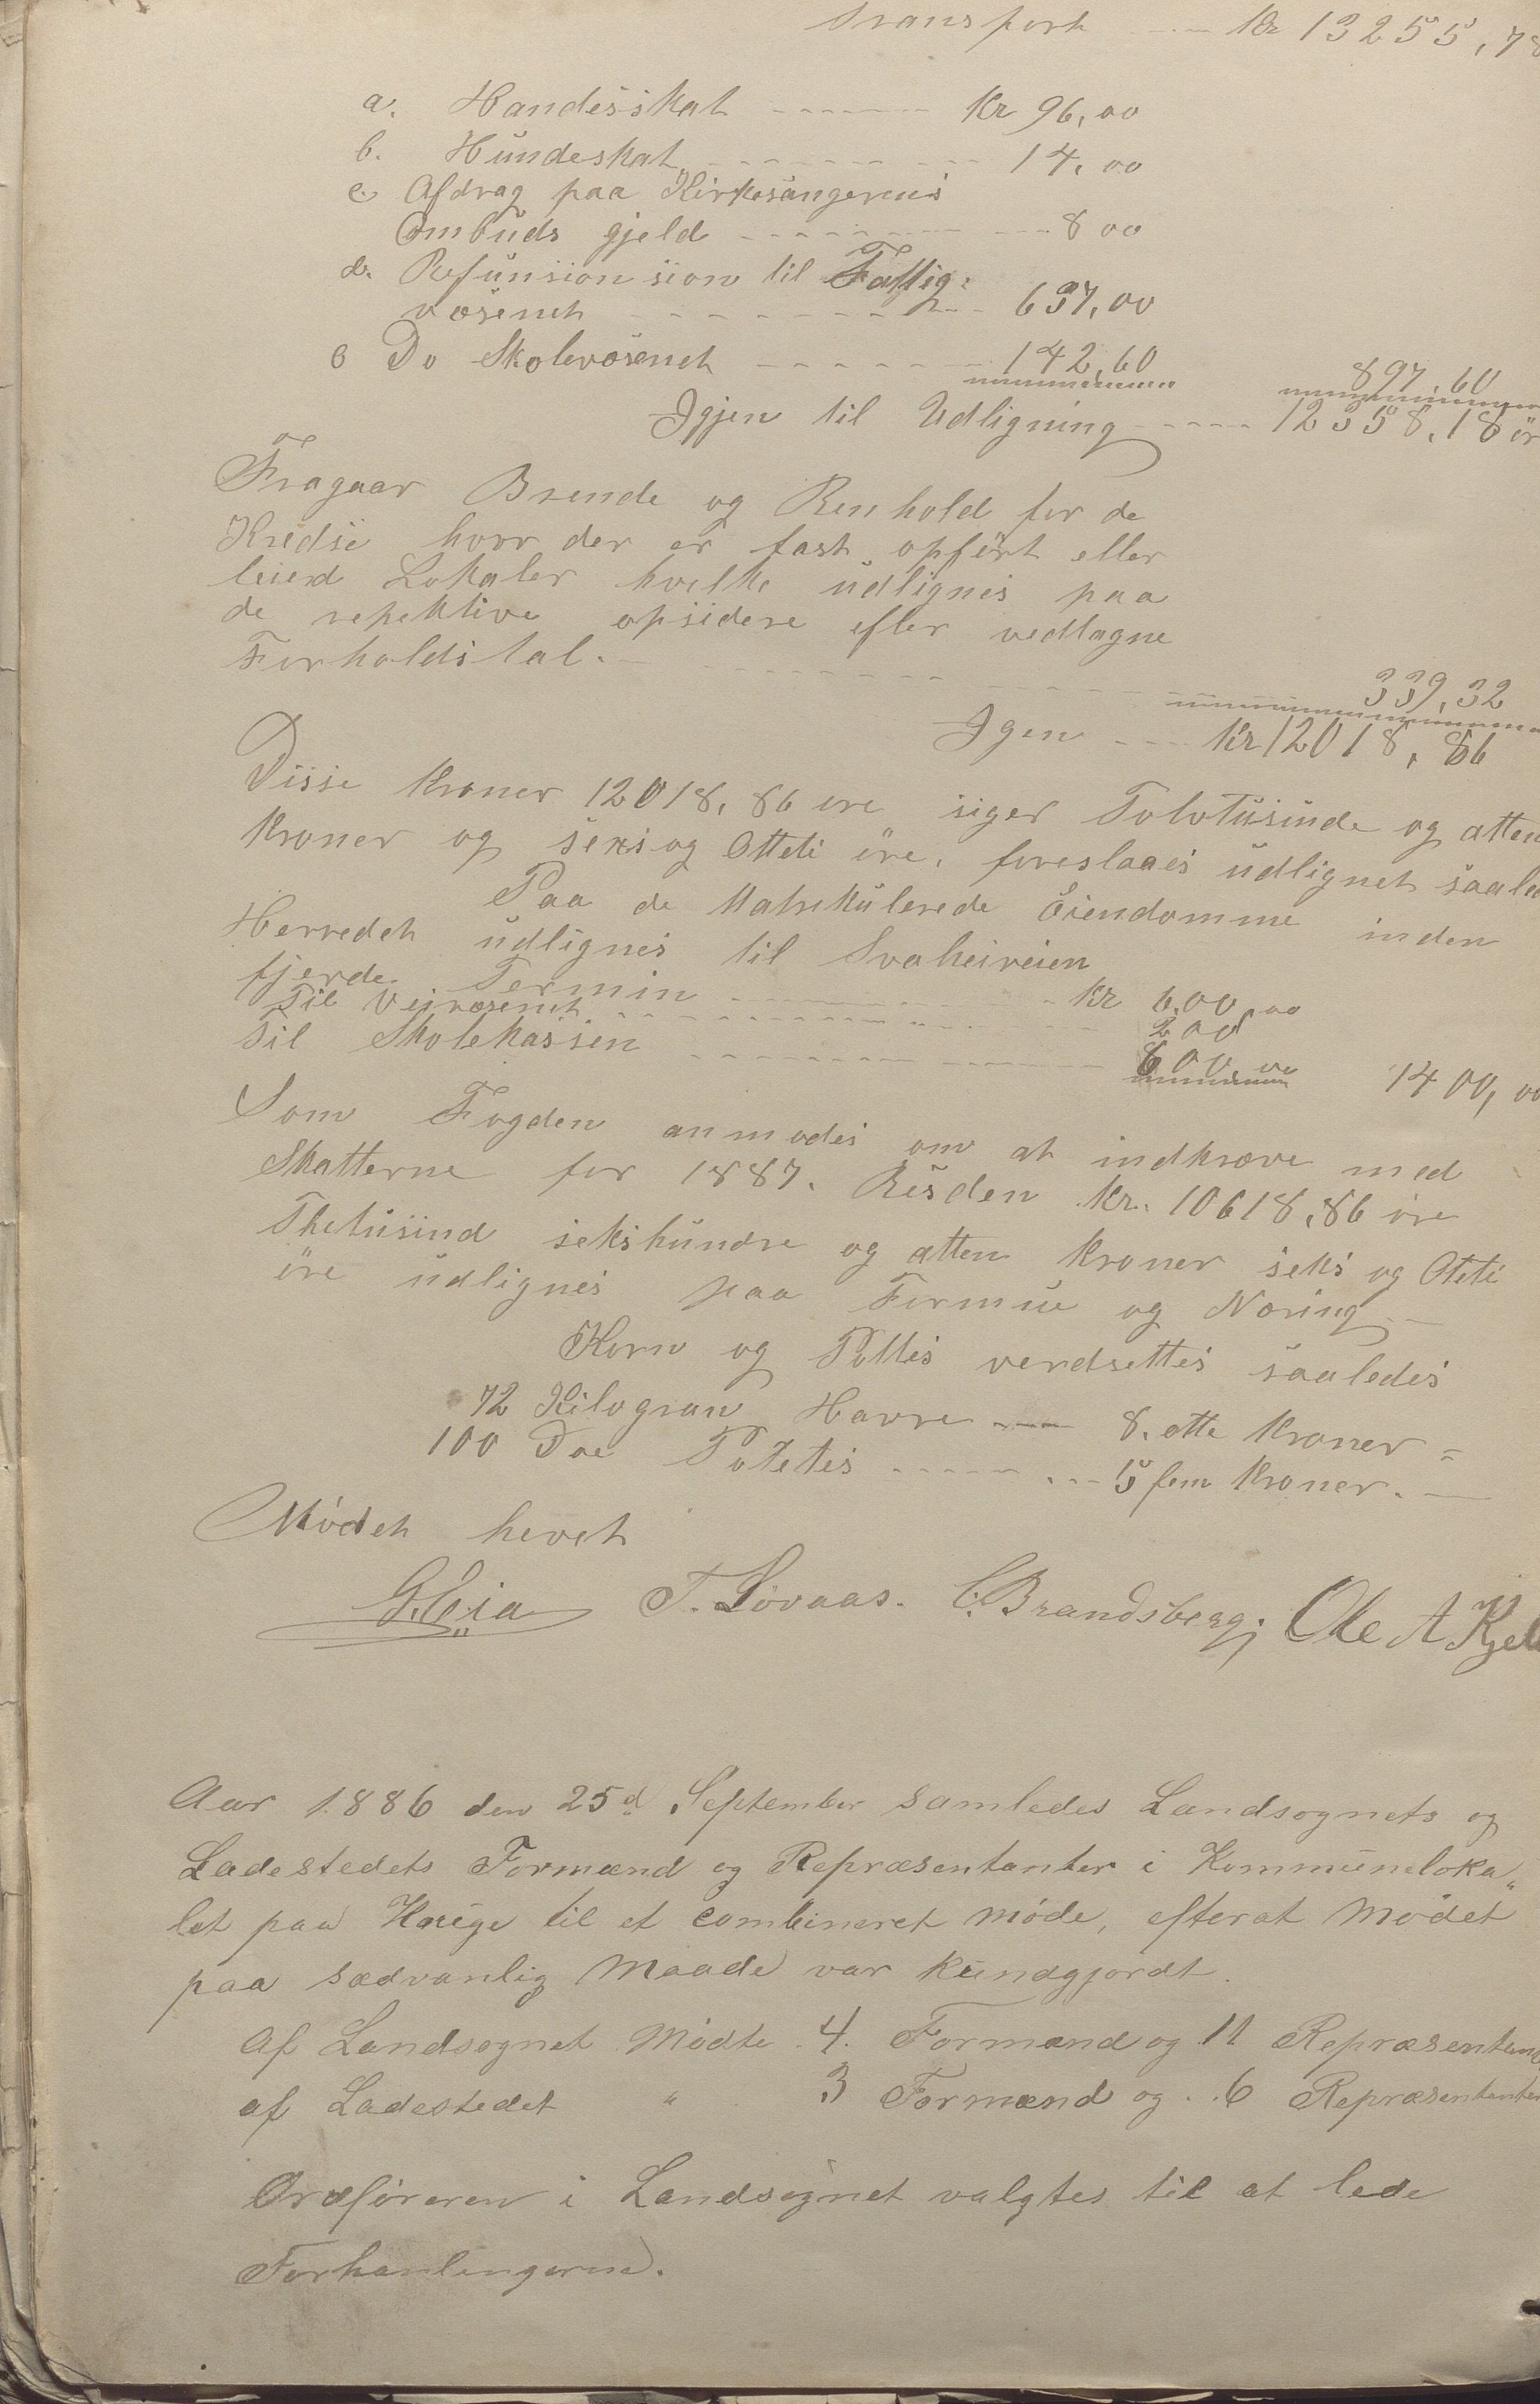 Transport - - - Kr 13255,78
a. Handesskat - - - - - - - Kr 96,00
b. Hundeskat - - - - - - - - - 14,00
c. Afdrag paa Kirkesangerens
Ombuds gjeld - - - - - - - - - 8 00
d. Refunsionsion til Fattig-
væsenet - - - - - - - - - 637,00
e Do Skolevæsenet - - - - - - 142,60 897,60
Igjen til Udligning - - - - - 12358,18 ör
Fragaar Brende og Renhold for de
Kredse hvor der er fast opfört eller
leied Lokaler hvilke udlignes paa
de repektive opsidere efter vedtagne
Forholdstal. - - - - - - - - 339,32
Igen - - - Kr 12018,86
Disse Kroner 12018,86 öre siger Tolvtusinde og atten
Kroner og seksog Otteti öre, foreslaaes udlignet saale
Paa de Matrikulerede Eiendomme inden
Herredet udlignes til Svaheiveien
fjerde Termin - - - - - - - - - Kr 600,00
Til Veivæsenet - - - - - - - - - 200
Til Skolekassen - - - - - - - - - 600,00 1400,00
Som Fogden anmodes om at indkræve med
Skatterne for 1887. Resden Kr. 10618,86 öre
Thetusind sekshundre og atten Kroner seks og Otteti
öre udlignes paa Formue og Næring -
Korn og Pottes verdsettes saaledes
72 Kilogram Havre - - - 8. otte Kroner -
100 Doe Potetes - - - - - - - 5 fem Kroner. -
Mödet hevet
G. Eia T. Lövaas. C. Brandsberg. Ole A Kjel
Aar 1886 den 25d September samledes Landsognets og
Ladestedets Formænd og Repræsentanter i Kommuneloka„
let paa Hauge til et combineret möde, efterat Mödet
paa sædvanlig Maade var kundgjordt.
Af Landsognet Mödte 4. Formænd og 11 Repræsentan
af Ladestedet " 3 Formænd og 6 Repræsentanter
Ordföreren i Landsognet valgtes til at lede
Forhanlingerne.